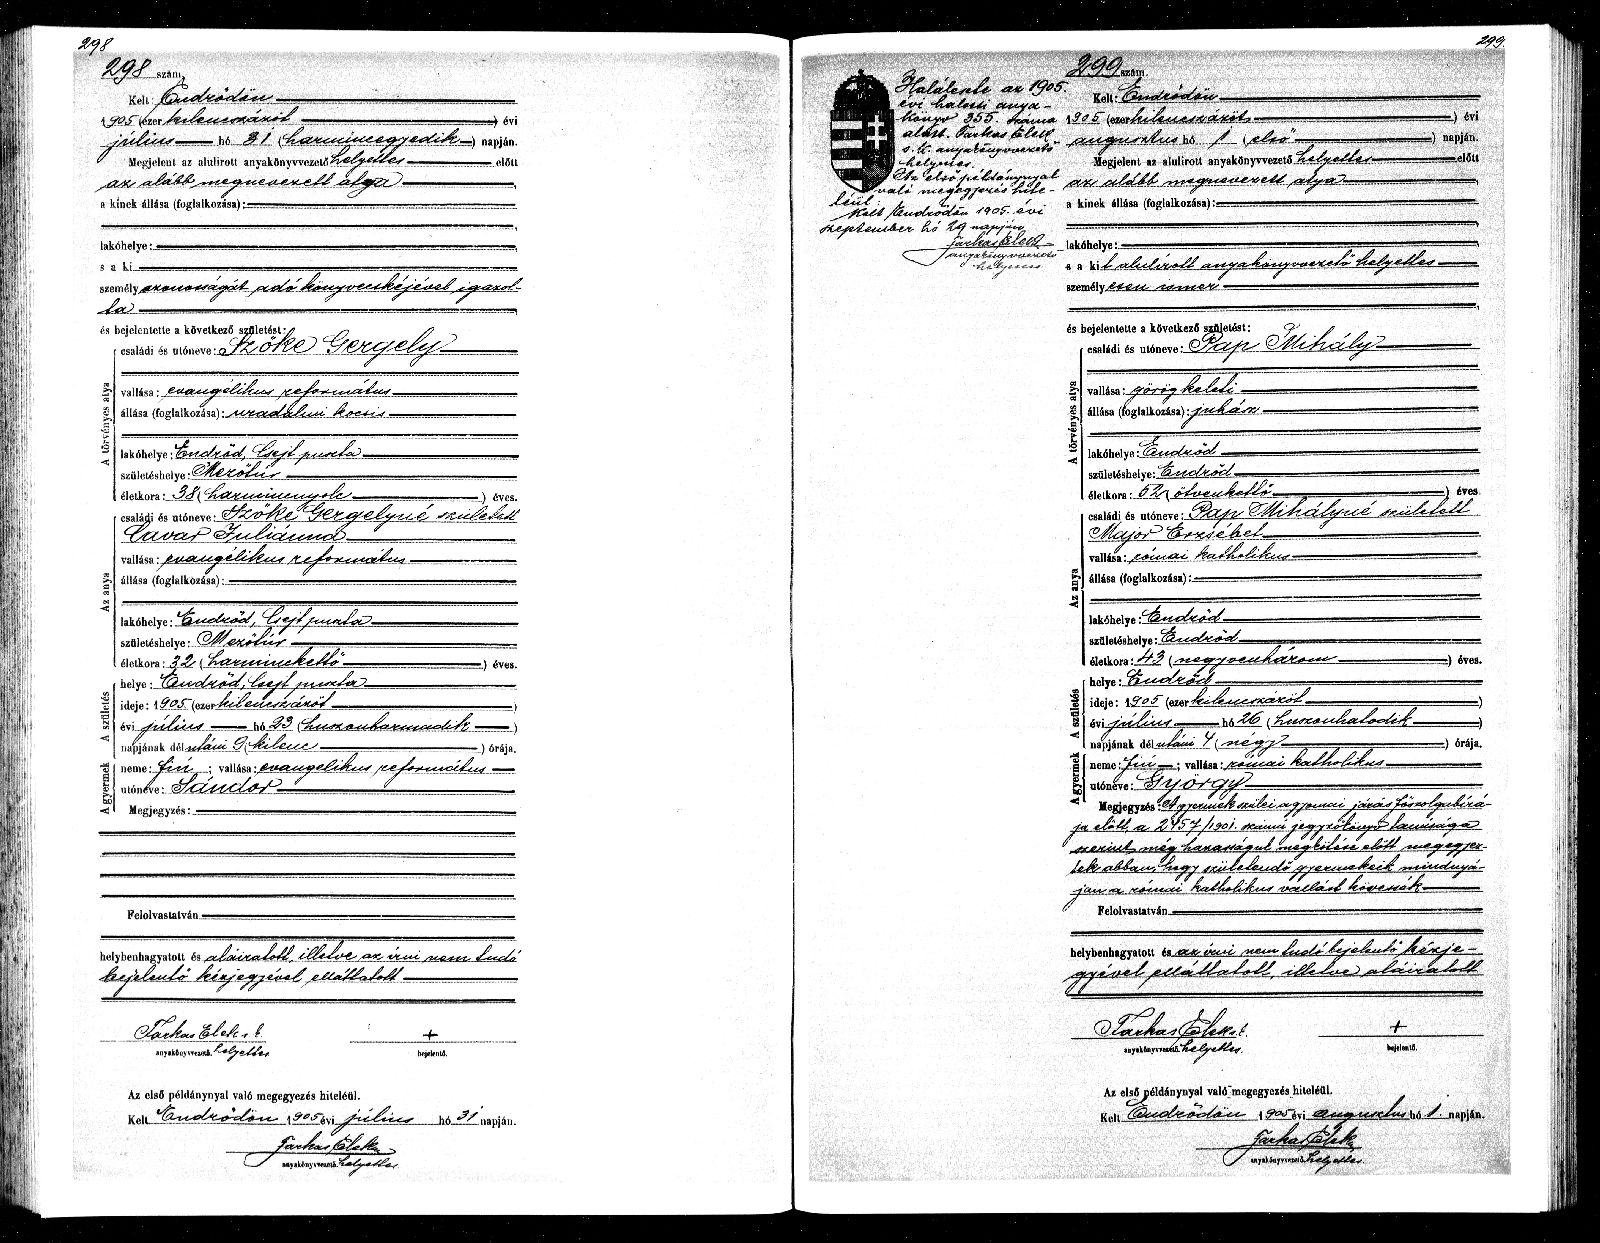 298
298 szám.
Kelt: Endrődön
1905 (ezer kilenczszázöt) évi
július hó 31 (harminczegyedik) napján.
Megjelent az alulirott anyakönyvvezető helyettes előtt
az alább megnevezett atya,
a kinek állása (foglalkozása):
lakóhelye:
s a ki
személyazonosságát adó könyvecskéjével igazol-
ta
és bejelentette a következő születést:
A törvényes atya
családi és utóneve: Szőke Gergely
vallása: evangélikus református
állása (foglalkozása): uradalmi kocsis
lakóhelye: Endrőd, Csejt puszta
születéshelye: Mezőtúr
életkora: 38 (harmincznyolc) éves.
Az anya
családi és utóneve: Szőke Gergelyné született
Lavar Juliánna
vallása: evangélikus református
állása (foglalkozása):
lakóhelye: Endrőd, Csejt puszta
születéshelye: Mezőtúr
életkora: 32 (harminckettő) éves.
A születés
helye: Endrőd, Csejt puszta
ideje: 1905 (ezer kilenczszázöt)
évi július hó 23 (huszonharmadik)
napjának délutáni 9 (kilenc) órája.
A gyermek
neme: fiú; vallása: evangelikus református
utóneve: Sándor
Megjegyzés:
Felolvastatván
helybenhagyatott és aláiratott, illetve az írni nem tudó
bejelentő kézjegyével elláttatott
Farkas Elek s. k.
anyakönyvvezető helyettes
+
bejelentő.
Az első példánynyal való megegyezés hiteléül.
Kelt Endrődön 1905 évi július hó 31 napján.
Farkas Elek
anyakönyvvezető helyettes
299.
Haláleste az 1905.
évi halotti anya-
könyv 355. száma
alatt. Farkas Elek
s. k. anyakönyvvezető
helyettes.
Az első példánynyal
való megegyezés hite-
léül.
Kelt Endrődön 1905. évi
szeptember hó 29 napján
Farkas Elek
anyakönyvvezető
helyettes
299 szám.
Kelt: Endrődön
1905 (ezer kilenczszázöt) évi
augusztus hó 1 (első) napján.
Megjelent az alulirott anyakönyvvezető helyettes előtt
az alább megnevezett atya
a kinek állása (foglalkozása):
lakóhelye:
s a kit alulírott anyakönyvvezető helyettes
személyesen ismer
és bejelentette a következő születést:
A törvényes atya
családi és utóneve: Pap Mihály
vallása: görög keleti
állása (foglalkozása): juhász
lakóhelye: Endrőd
születéshelye: Endrőd
életkora: 52 (ötvenkettő) éves.
Az anya
családi és utóneve: Pap Mihályné született
Major Erzsébet
vallása: római katholikus
állása (foglalkozása):
lakóhelye: Endrőd
születéshelye: Endrőd
életkora: 43 (negyvenhárom) éves.
A születés
helye: Endrőd
ideje: 1905 (ezer kilenczszázöt)
évi július hó 26 (huszonhatodik)
napjának délutáni 4 (négy) órája.
A gyermek
neme: fiú; vallása: római katholikus
utóneve: György
Megjegyzés: A gyermek szülei a gyomai járás főszolgabírá-
ja előtt a 2457/1901. számú jegyzőkönyv tanúsága
szerint még házasságuk megkötése előtt megegyez-
tek abban, hogy születendő gyermekeik mindnyá-
jan a római katholikus vallást kövessék
Felolvastatván
helybenhagyatott és az írni nem tudó bejelentő kézje-
gyével elláttatott, illetve aláíratott
Farkas Elek s. k.
anyakönyvvezető helyettes.
+
bejelentő.
Az első példánynyal való megegyezés hiteléül.
Kelt Endrődön 1905 évi augusztus hó 1. napján.
Farkas Elek
anyakönyvvezető helyettes